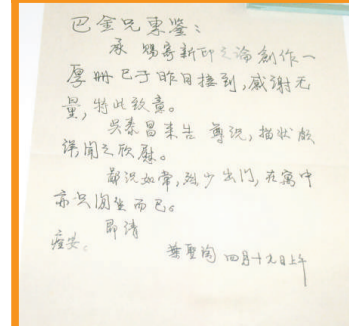 巴金兄柬鉴:
承 赐寄新印之论创作一
厚册已于昨日接到,感谢无
量,特此致意。
吴泰昌来告 尊况,描状颇
详闻之欣慰。
鄙况如常,越少出门,在寓中
亦只闲坐而已。
即请
痊安。
叶圣陶 四月十九日上午